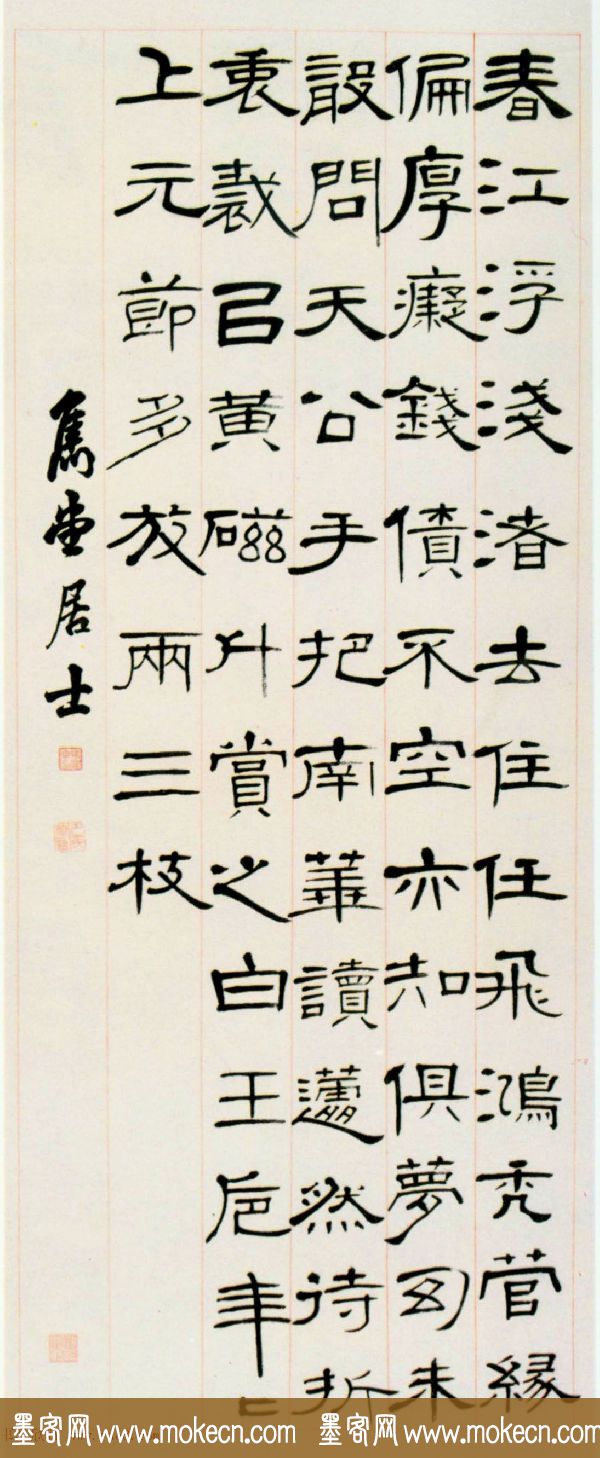 春江浮淺渚去住任飛鴻禿管緣
偏厚癡錢債不空亦知俱夢幻未
設問天公手把南華讀邁然待折
衷裁呂黃磁升賞之白玉卮年
上元節多放兩三枝
居士
墨客网 www.mokecn.com 墨客网 www.mokecn.com